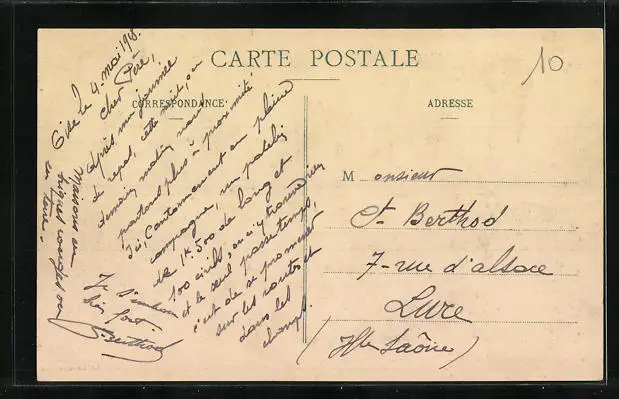 CARTE POSTALE
10
CORRESPONDANCE
ADRESSE
le 4 mai 1918.
Cher Père,
Après une journée
de repos, cette nuit, ou
demain matin nous
partons plus à proximité
Ici, Cantonnement en pleine
campagne, un patelin
de 1k.500 de long et
100 civils, on s'y trouve
et le seul passe temps,
c'est de se promener
sur les routes et
dans les
champs.
Maisons en
briques rouges ou
en terre.
Je
bien fort.
Berthod
Monsieur
Ct. Berthod
7 - rue d'alsace
Lure
(Hte Saône)